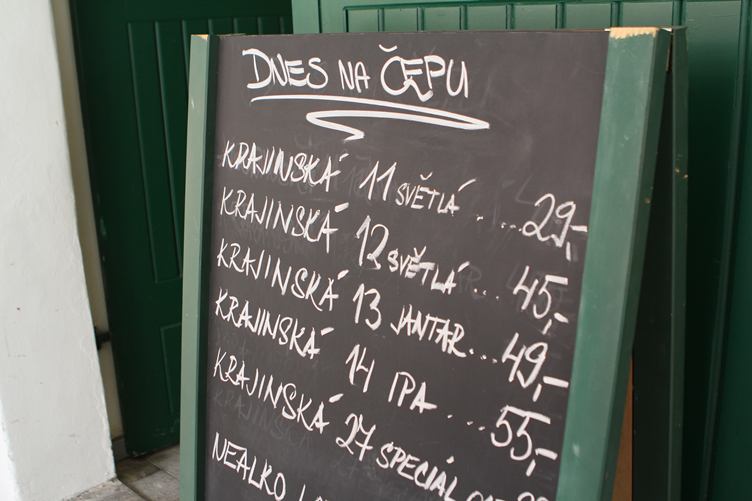 DNES NA ČEPU
KRAJINSKÁ 11 SVĚTLÁ . ...29,-
KRAJINSKÁ 12 SVĚTLÁ ... 45,-
KRAJINSKÁ 13 JANTAR... 49,-
KRAJINSKÁ 14 IPA .... 55,-
KRAJINSKÁ 27 SPECIÁL
NEALKO